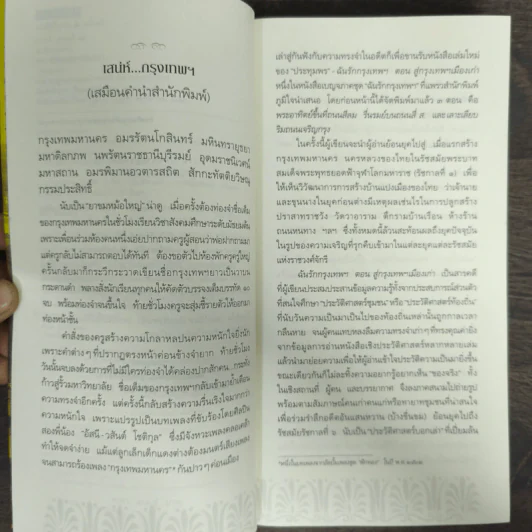 เสน่ห์...กรุงเทพฯ
(เสมือนคำนำสำนักพิมพ์)
กรุงเทพมหานคร อมรรัตนโกสินทร์ มหินทรายุธยา
มหาดิลกภพ นพรัตนราชธานีบุรีรมย์ อุดมราชนิเวศน์
มหาสถาน อมรพิมานอวตารสถิต สักกะทัตติยวิษณุ
กรรมประสิทธิ์
นับเป็น "ยาขมหม้อใหญ่" น่าดู เมื่อครั้งต้องท่องจำชื่อเต็ม
ของกรุงเทพมหานครในชั่วโมงเรียนวิชาสังคมศึกษาระดับมัธยมต้น
เพราะเพื่อนร่วมห้องคนหนึ่งเอ่ยปากถามครูผู้สอนว่าพ่อฝากถามมา
แต่ครูกลับไม่สามารถตอบได้ทันที ต้องขอตัวไปห้องพักครูครู่ใหญ่
ครั้นกลับมาก็กระวีกระวาดเขียนชื่อกรุงเทพฯ ยาวเป็นขบวน
กระดานดำ พลางสั่งนักเรียนทุกคนให้คัดตัวบรรจงเต็มบรรทัด ๑๐
จบ พร้อมท่องจำจนขึ้นใจ ท้ายชั่วโมงครูจะสุ่มชี้รายตัวให้ออกมา
ท่องหน้าชั้น
คำสั่งของครูสร้างความโกลาหลปนความหนักใจยิ่งนัก
เพราะคำต่างๆ ที่ปรากฏตรงหน้าค่อนข้างจำยาก ท้ายชั่วโมง
วันนั้นจบลงด้วยการที่ไม่มีใครท่องจำได้คล่องปากสักคน กระทั่ง
ก้าวสู่รั้วมหาวิทยาลัย ชื่อเต็มของกรุงเทพฯ กลับเข้ามาในคืน
ความทรงจำอีกครั้ง แต่ครั้งนี้กลับสร้างความรื่นเริงใจมากกว่า
ความหนักใจ เพราะแปรรูปเป็นบทเพลงที่ขับร้องโดยศิลปิน
สองพี่น้อง "อัสนี-วสันต์ โชติกุล" ซึ่งมีจังหวะเพลงคลอคล้า
ทำให้จดจำง่าย แม้แต่ลูกเล็กเด็กแดงต่างต้องมนตร์เสียงเพลง
จนสามารถร้องเพลง "กรุงเทพมหานคร" กันปาวๆ ค่อนเมือง
เล่าสู่กันฟังกับความทรงจำในอดีตก็เพื่อขานรับหนังสือเล่มใหม่
ของ "ประทุมพร" - ฉันรักกรุงเทพฯ ตอน สู่กรุงเทพฯ เมืองเก่า
หนึ่งในหนังสือเบญจภาคชุด "ฉันรักกรุงเทพฯ" ที่แพรวสำนักพิมพ์
ภูมิใจนำเสนอ โดยก่อนหน้านี้ได้จัดพิมพ์มาแล้ว ๓ ตอน คือ
พระอาทิตย์ขึ้นที่ถนนสีลม รื่นรมย์บนถนนสี่ ส. และเลาะเลียบ
ริมถนนเจริญกรุง
ในครั้งนี้ผู้เขียนจะนำผู้อ่านย้อนยุคไปสู่ เมื่อแรกสร้าง
กรุงเทพมหานคร นครหลวงของไทยในรัชสมัยพระบาท
สมเด็จพระพุทธยอดฟ้าจุฬาโลกมหาราช (รัชกาลที่ ๑) เพื่อ
ให้เห็นวิวัฒนาการการสร้างบ้านแปงเมืองของไทย ว่าเจ้านาย
และขุนนางในยุคก่อนต่างมีเหตุผลเช่นไรในการปลูกสร้าง
ปราสาทราชวัง วัดวาอาราม ตึกรามบ้านเรือน ห้างร้าน
ถนนหนทาง ฯลฯ ซึ่งทั้งหมดนี้ล้วนสะท้อนเผยถึงยุคปัจจุบัน
ในรูปของความเจริญที่รุกคืบเข้ามาในแต่ละยุคแต่ละรัชสมัย
แห่งราชวงศ์จักรี
ฉันรักกรุงเทพฯ ตอน สู่กรุงเทพฯ เมืองเก่า เป็นสารคดี
ที่ผู้เขียนประสมประสานข้อมูลความรู้ทั้งจากประสบการณ์ส่วนตัว
ที่สนใจศึกษา "ประวัติศาสตร์ชุมชน" หรือ "ประวัติศาสตร์ท้องถิ่น"
ที่นับวันความเป็นมาเป็นไปของท้องถิ่นเหล่านั้นถูกกาลเวลา
กลืนหาย จนผู้คนแทบหลงลืมความทรงจำเก่าๆ ที่ทรงคุณค่ายิ่ง
จากข้อมูลการอ่านหนังสือเชิงประวัติศาสตร์หลากหลายเล่ม
แล้วนำมาย่อยความเพื่อให้ผู้อ่านเข้าใจประวัติความเป็นมายิ่งขึ้น
ขณะเดียวกันก็ไม่ละทิ้งความอยากรู้อยากเห็น "ของจริง" ทั้ง
ในเชิงสถานที่ ผู้คน และบรรยากาศ จึงลงภาคสนามไปถ่ายรูป
พร้อมตามสัมภาษณ์คนเก่าคนแก่หรือทายาทชุมชนที่น่าสนใจ
เพื่อร่วมรำลึกอดีตอันแสนหวาน (บ้างขื่นขม) ย้อนยุคไปถึง
รัชสมัยรัชกาลที่ ๑ นับเป็น "ประวัติศาสตร์บอกเล่า" ที่เปี่ยมล้น